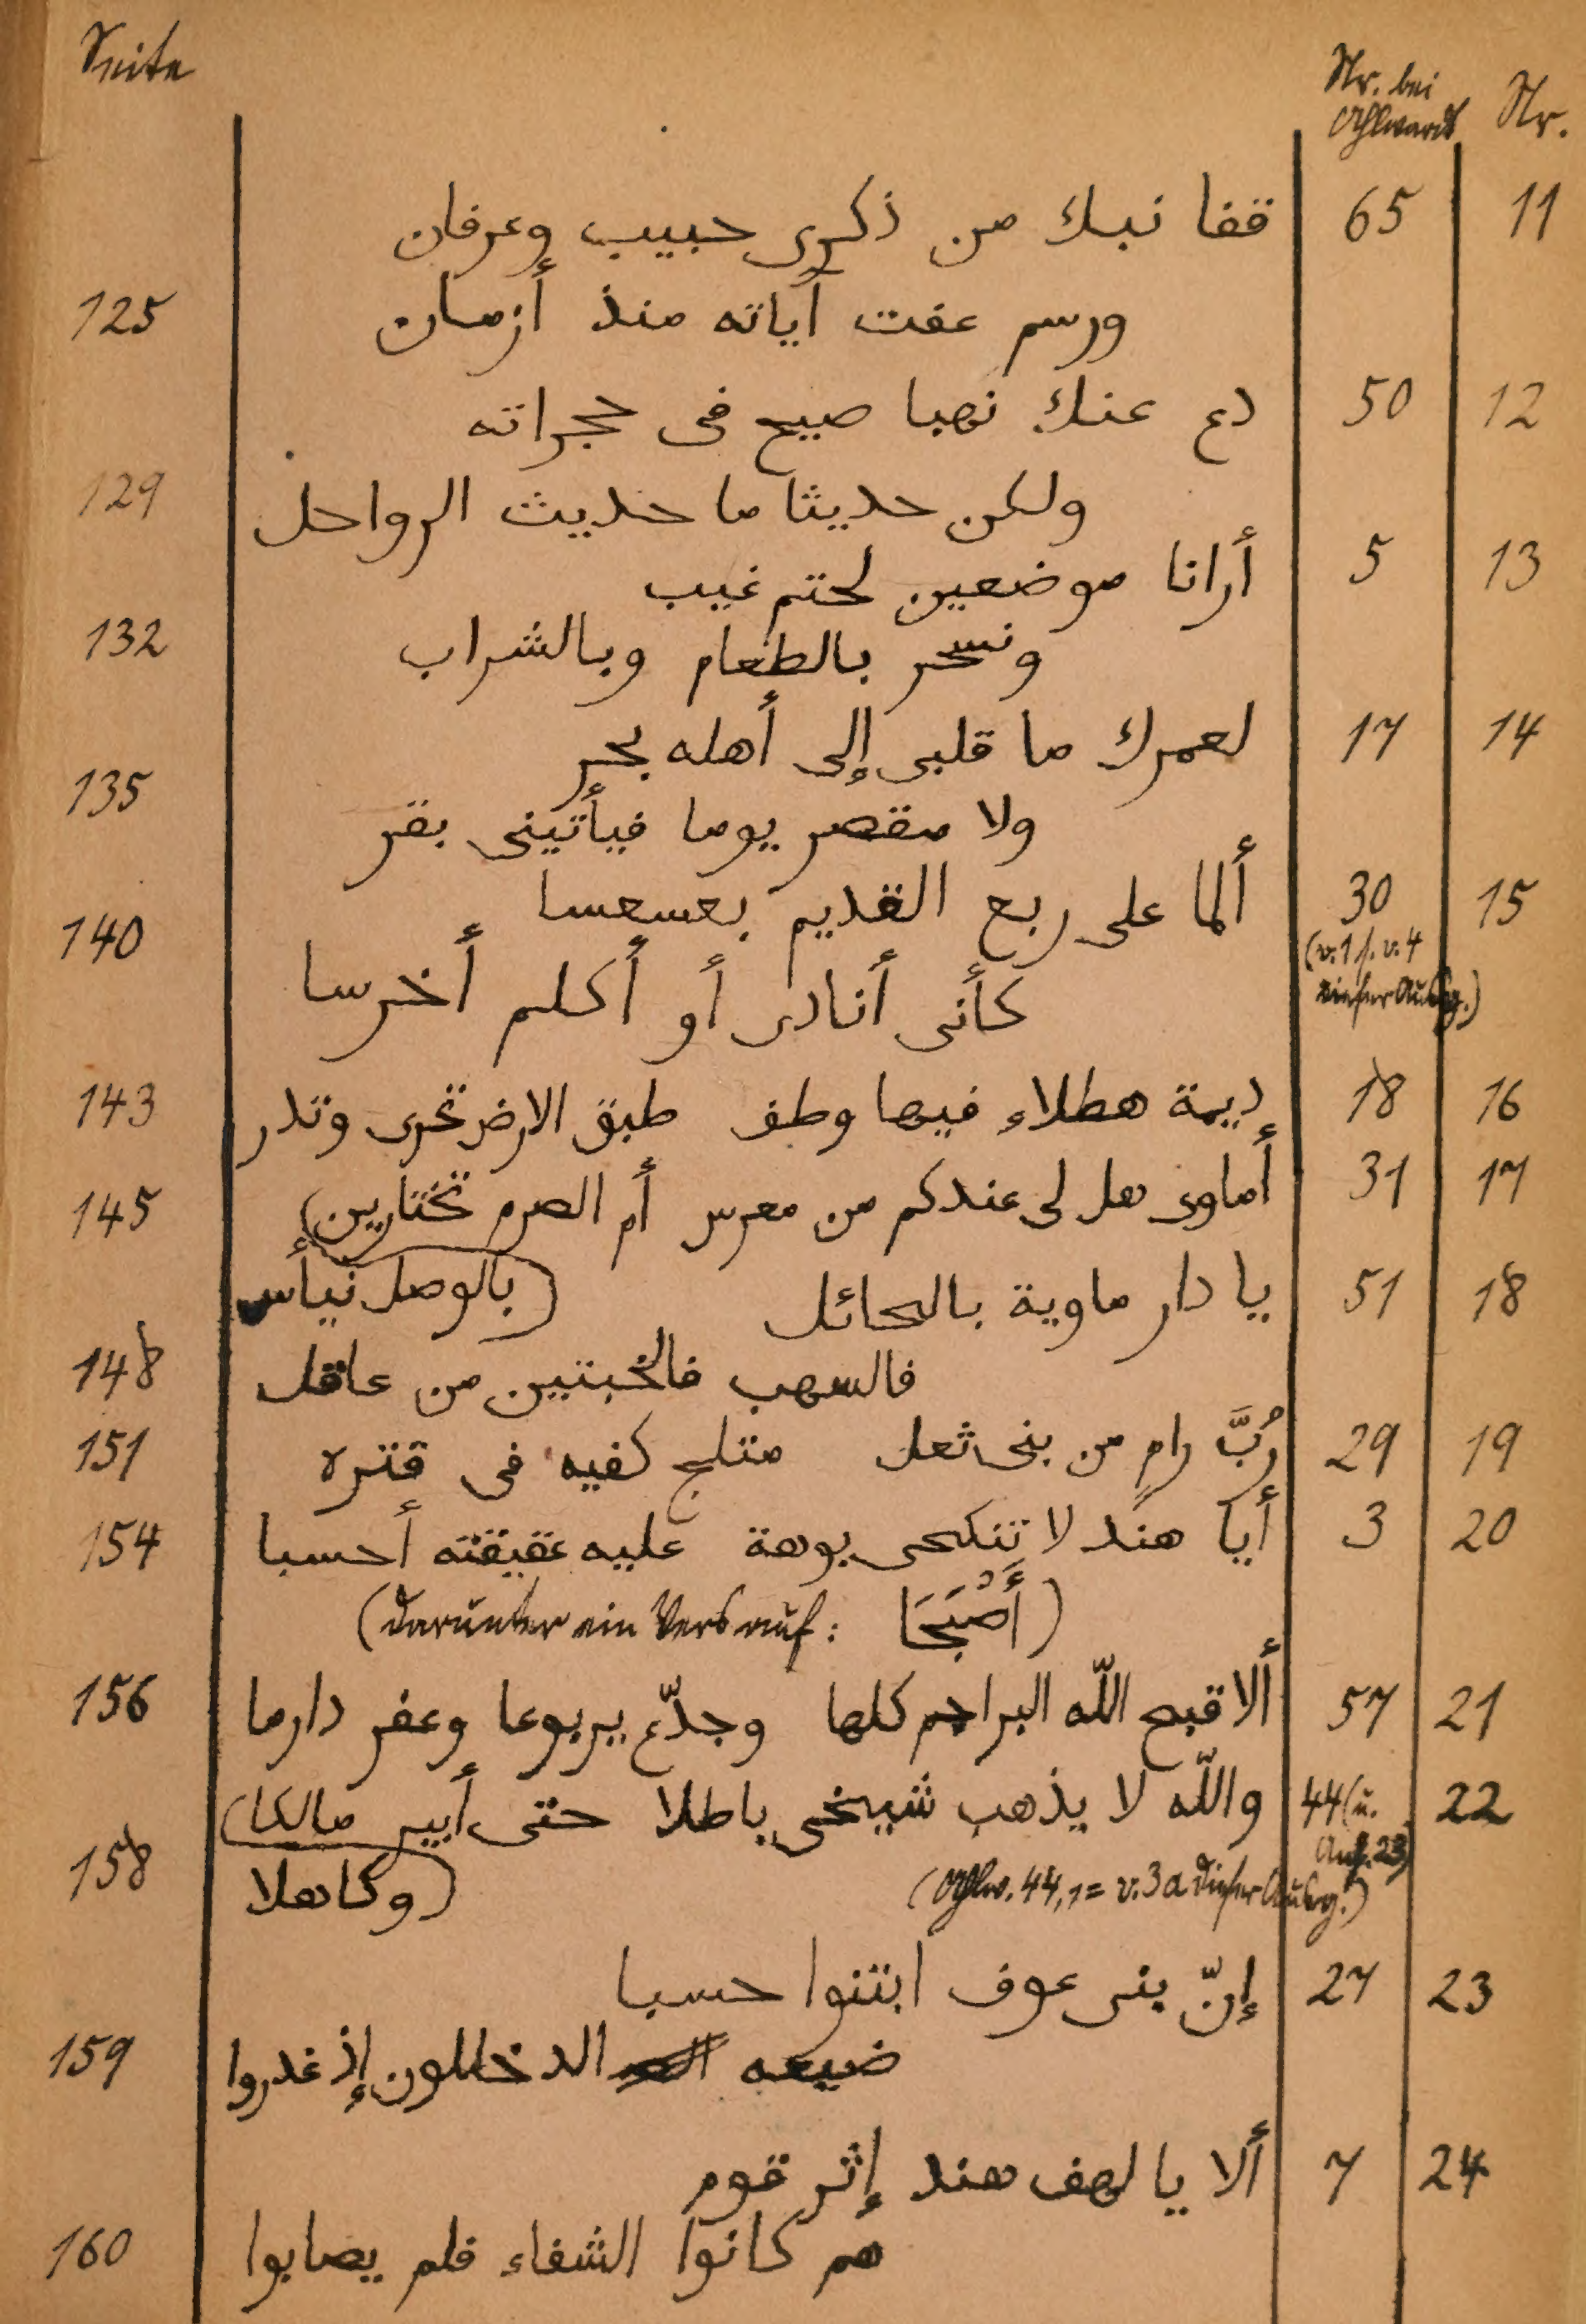 Seite Nr. bei Ahlwardt Nr.
11 65 قفا نبك من ذكرى حبيب وعرفان
ورسم عفت آياته منذ أزمان 125
12 50 دع عنك نهبا صيح فى حجراته
ولكن حديثا ما حديث الرواحل 129
13 5 أرانا موضعين لحتم غيب
ونسحر بالطعام وبالشراب 132
14 17 لعمرك ما قلبى إلى أهله بحر
ولا مقصر يوما فيأتينى بقر 135
15 30 ألما على ربع القديم بعسعسا
(v. 1 s. v. 4 dieser Ausg.)
كأنى أنادى أو أكلم أخرسا 140
16 18 ديمة هطلاء فيها وطف طبق الارض تحرى وتدر 143
17 31 أماوى هل لى عندكم من معرس أم الصرم تختارين 145
(بالوصل نيأس
18 51 يا دار ماوية بالحائل
فالسهب فالخبتين من عاقل 148
19 29 رُبَّ رامٍ من بنى ثعل متلج كفيه فى قتره 151
20 3 أيا هند لا تنكحى بوهة عليه عقيقته أحسبا 154
(darunter ein Vers auf: أَصْبَحَا)
21 57 ألا قبح اللّه البراجم كلها وجدّع يربوعا وعفر دارما 156
22 44 (u. Anf. 23) واللّه لا يذهب شيخى باطلا حتى أبير مالكا
(وكاهلا 158
(Ahlw. 44,1 = v. 3a dieser Ausg.)
23 27 إنّ بنى عوف ابتنوا حسبا
ضيعه الدخللون إذ غدروا 159
24 7 ألا يا لهف هند إثر قوم
هم كانوا الشفاء فلم يصابوا 160